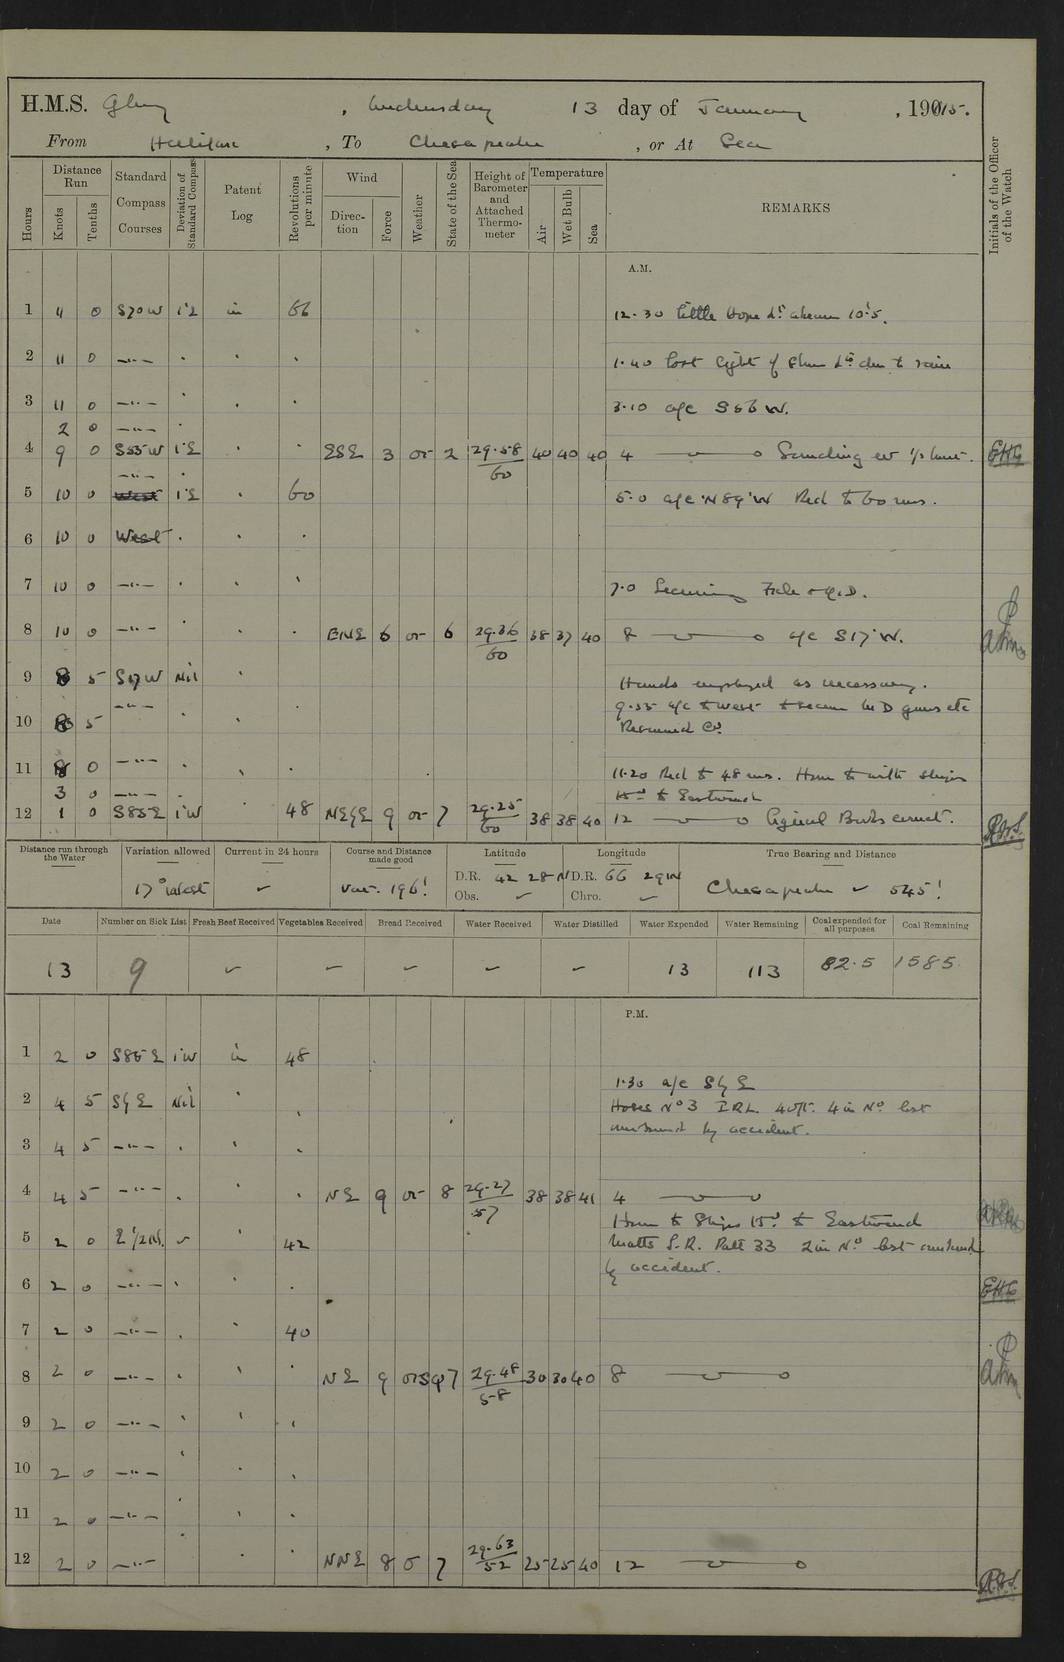 H.M.S. Glory, Wednesday 13 day of January, 1915.
From Halifax, To Chesapeake, or At Sea
Hours
Distance Run
Knots
Tenths
Standard Compass Courses
Deviation of Standard Compass
Patent Log
Revolutions per minute
Wind
Direction
Force
Weather
State of the Sea
Height of Barometer and Attached Thermometer
Temperature
Air
Wet Bulb
Sea
REMARKS
Initials of the Officer of the Watch
A.M.
1 11 0 S70W 1°E in 66 12.30 Little Hope Lt abeam 10'.5.
2 11 0 —"— 1.40 lost sight of Shore Lts due to rain
3 11 0 —"— 3.10 a/c S56W.
2 0 —"—
4 9 0 S55W 1°E ESE 3 or 2 29.58/60 40 40 40 4 Sounding ev ½ hour. EHG
—"—
5 10 0 West 1°E 60 5.0 a/c N89°W Red to 60 revs.
6 10 0 West
7 10 0 —"— 7.0 Securing
8 10 0 —"— ENE 6 or 6 29.36/60 38 37 40 8 a/c S17°W.
9 8 5 S17W Nil Hands employed as necessary.
—"— 9.55 a/c to West to secure M D guns etc
10 8 5 Resumed Co.
11 8 0 —"— 11.20 Red to 48 revs. Hove to with ships
3 0 —"— Hd to Eastward
12 1 0 S85E 1°W 48 NEbE 9 or 7 29.25/60 38 38 40 12 Signal Books correct.
Distance run through the Water
Variation allowed 17° West
Current in 24 hours
Course and Distance made good Var. 196'
Latitude D.R. 42 28 N Obs.
Longitude D.R. 66 29 W Chro.
True Bearing and Distance Chesapeake 545'
Date Number on Sick List Fresh Beef Received Vegetables Received Bread Received Water Received Water Distilled Water Expended Water Remaining Coal expended for all purposes Coal Remaining
13 9 13 113 82.5 1585
P.M.
1 2 0 S85E 1°W in 48
1.30 a/c SbE
2 4 5 SbE Nil Hoses No 3 I.R.L. 40ft. 4 in No lost
3 4 5 —"— overboard by accident.
4 4 5 —"— NE 9 or 8 29.27/57 38 38 41 4
Hove to Ships Hd to Eastward
5 2 0 E½N. 42 Matts S.R. Patt 33 2 in No lost overboard
by accident.
6 2 0 —"— EHG
7 2 0 —"— 40
8 2 0 —"— NE 9 orsq 7 29.48/58 30 30 40 8
9 2 0 —"—
10 2 0 —"—
11 2 0 —"—
12 2 0 —"— NNE 8 o 7 29.63/52 25 25 40 12